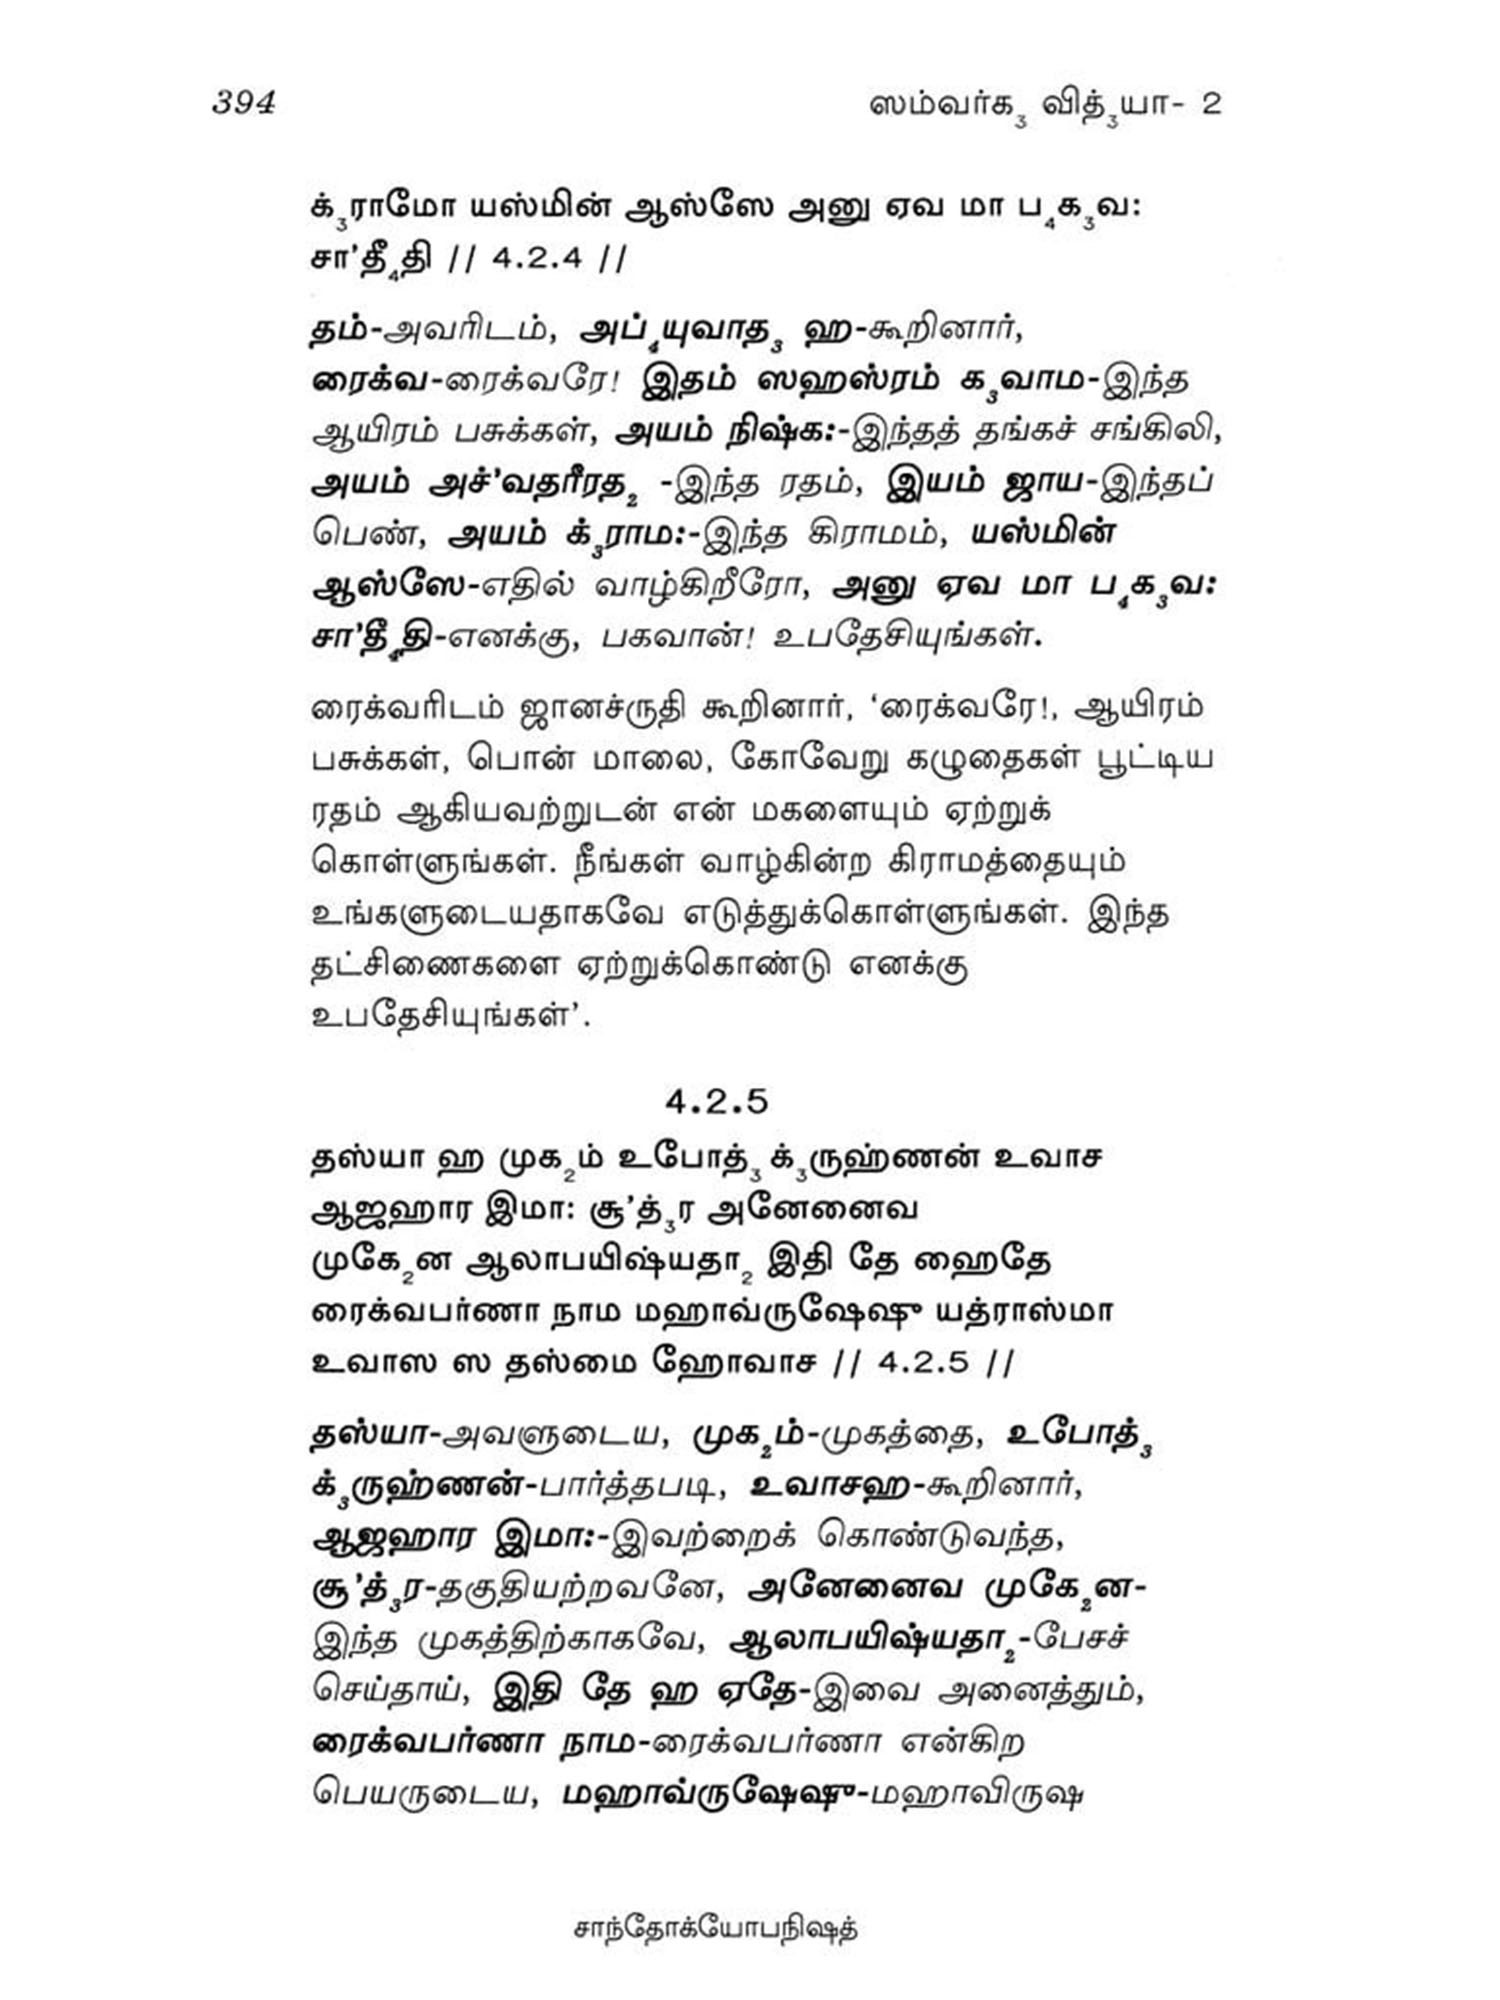 394
ஸம்வர்க₃ வித்₃யா- 2
க்₃ராமோ யஸ்மின் ஆஸ்ஸே அனு ஏவ மா ப₄க₃வ:
சா’தீ₄தி // 4.2.4 //
தம்-அவரிடம், அப்₄யுவாத₃ ஹ-கூறினார்,
ரைக்வ-ரைக்வரே! இதம் ஸஹஸ்ரம் க₃வாம-இந்த
ஆயிரம் பசுக்கள், அயம் நிஷ்க:-இந்தத் தங்கச் சங்கிலி,
அயம் அச்’வதரீரத₂ -இந்த ரதம், இயம் ஜாய-இந்தப்
பெண், அயம் க்₃ராம:-இந்த கிராமம், யஸ்மின்
ஆஸ்ஸே-எதில் வாழ்கிறீரோ, அனு ஏவ மா ப₄க₃வ:
சா’தீ₄தி-எனக்கு, பகவான்! உபதேசியுங்கள்.
ரைக்வரிடம் ஜானச்ருதி கூறினார், ‘ரைக்வரே!, ஆயிரம்
பசுக்கள், பொன் மாலை, கோவேறு கழுதைகள் பூட்டிய
ரதம் ஆகியவற்றுடன் என் மகளையும் ஏற்றுக்
கொள்ளுங்கள். நீங்கள் வாழ்கின்ற கிராமத்தையும்
உங்களுடையதாகவே எடுத்துக்கொள்ளுங்கள். இந்த
தட்சிணைகளை ஏற்றுக்கொண்டு எனக்கு
உபதேசியுங்கள்’.
4.2.5
தஸ்யா ஹ முக₂ம் உபோத்₃ க்₃ருஹ்ணன் உவாச
ஆஜஹார இமா: சூ’த்₃ர அனேனைவ
முகே₂ன ஆலாபயிஷ்யதா₂ இதி தே ஹைதே
ரைக்வபர்ணா நாம மஹாவ்ருஷேஷு யத்ராஸ்மா
உவாஸ ஸ தஸ்மை ஹோவாச // 4.2.5 //
தஸ்யா-அவளுடைய, முக₂ம்-முகத்தை, உபோத்₃
க்₃ருஹ்ணன்-பார்த்தபடி, உவாசஹ-கூறினார்,
ஆஜஹார இமா:-இவற்றைக் கொண்டுவந்த,
சூ’த்₃ர-தகுதியற்றவனே, அனேனைவ முகே₂ன-
இந்த முகத்திற்காகவே, ஆலாபயிஷ்யதா₂-பேசச்
செய்தாய், இதி தே ஹ ஏதே-இவை அனைத்தும்,
ரைக்வபர்ணா நாம-ரைக்வபர்ணா என்கிற
பெயருடைய, மஹாவ்ருஷேஷு-மஹாவிருஷ
சாந்தோக்யோபநிஷத்